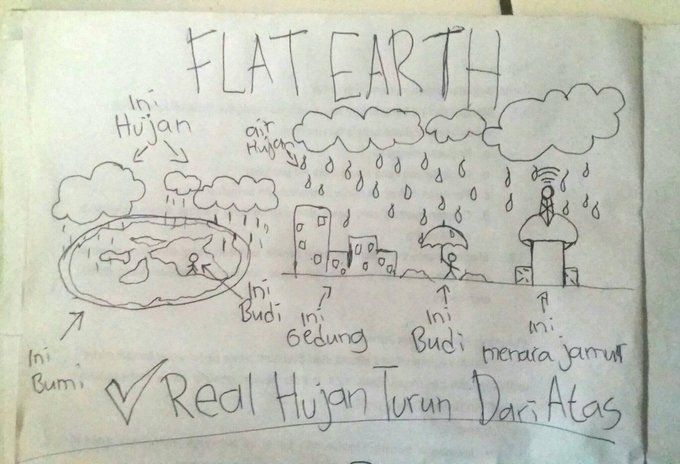 FLAT EARTH
Ini
Hujan
air
Hujan
Ini
Budi
Ini
Bumi
Ini
Gedung
Ini
Budi
Ini
menara jamur
✓ Real Hujan Turun Dari Atas